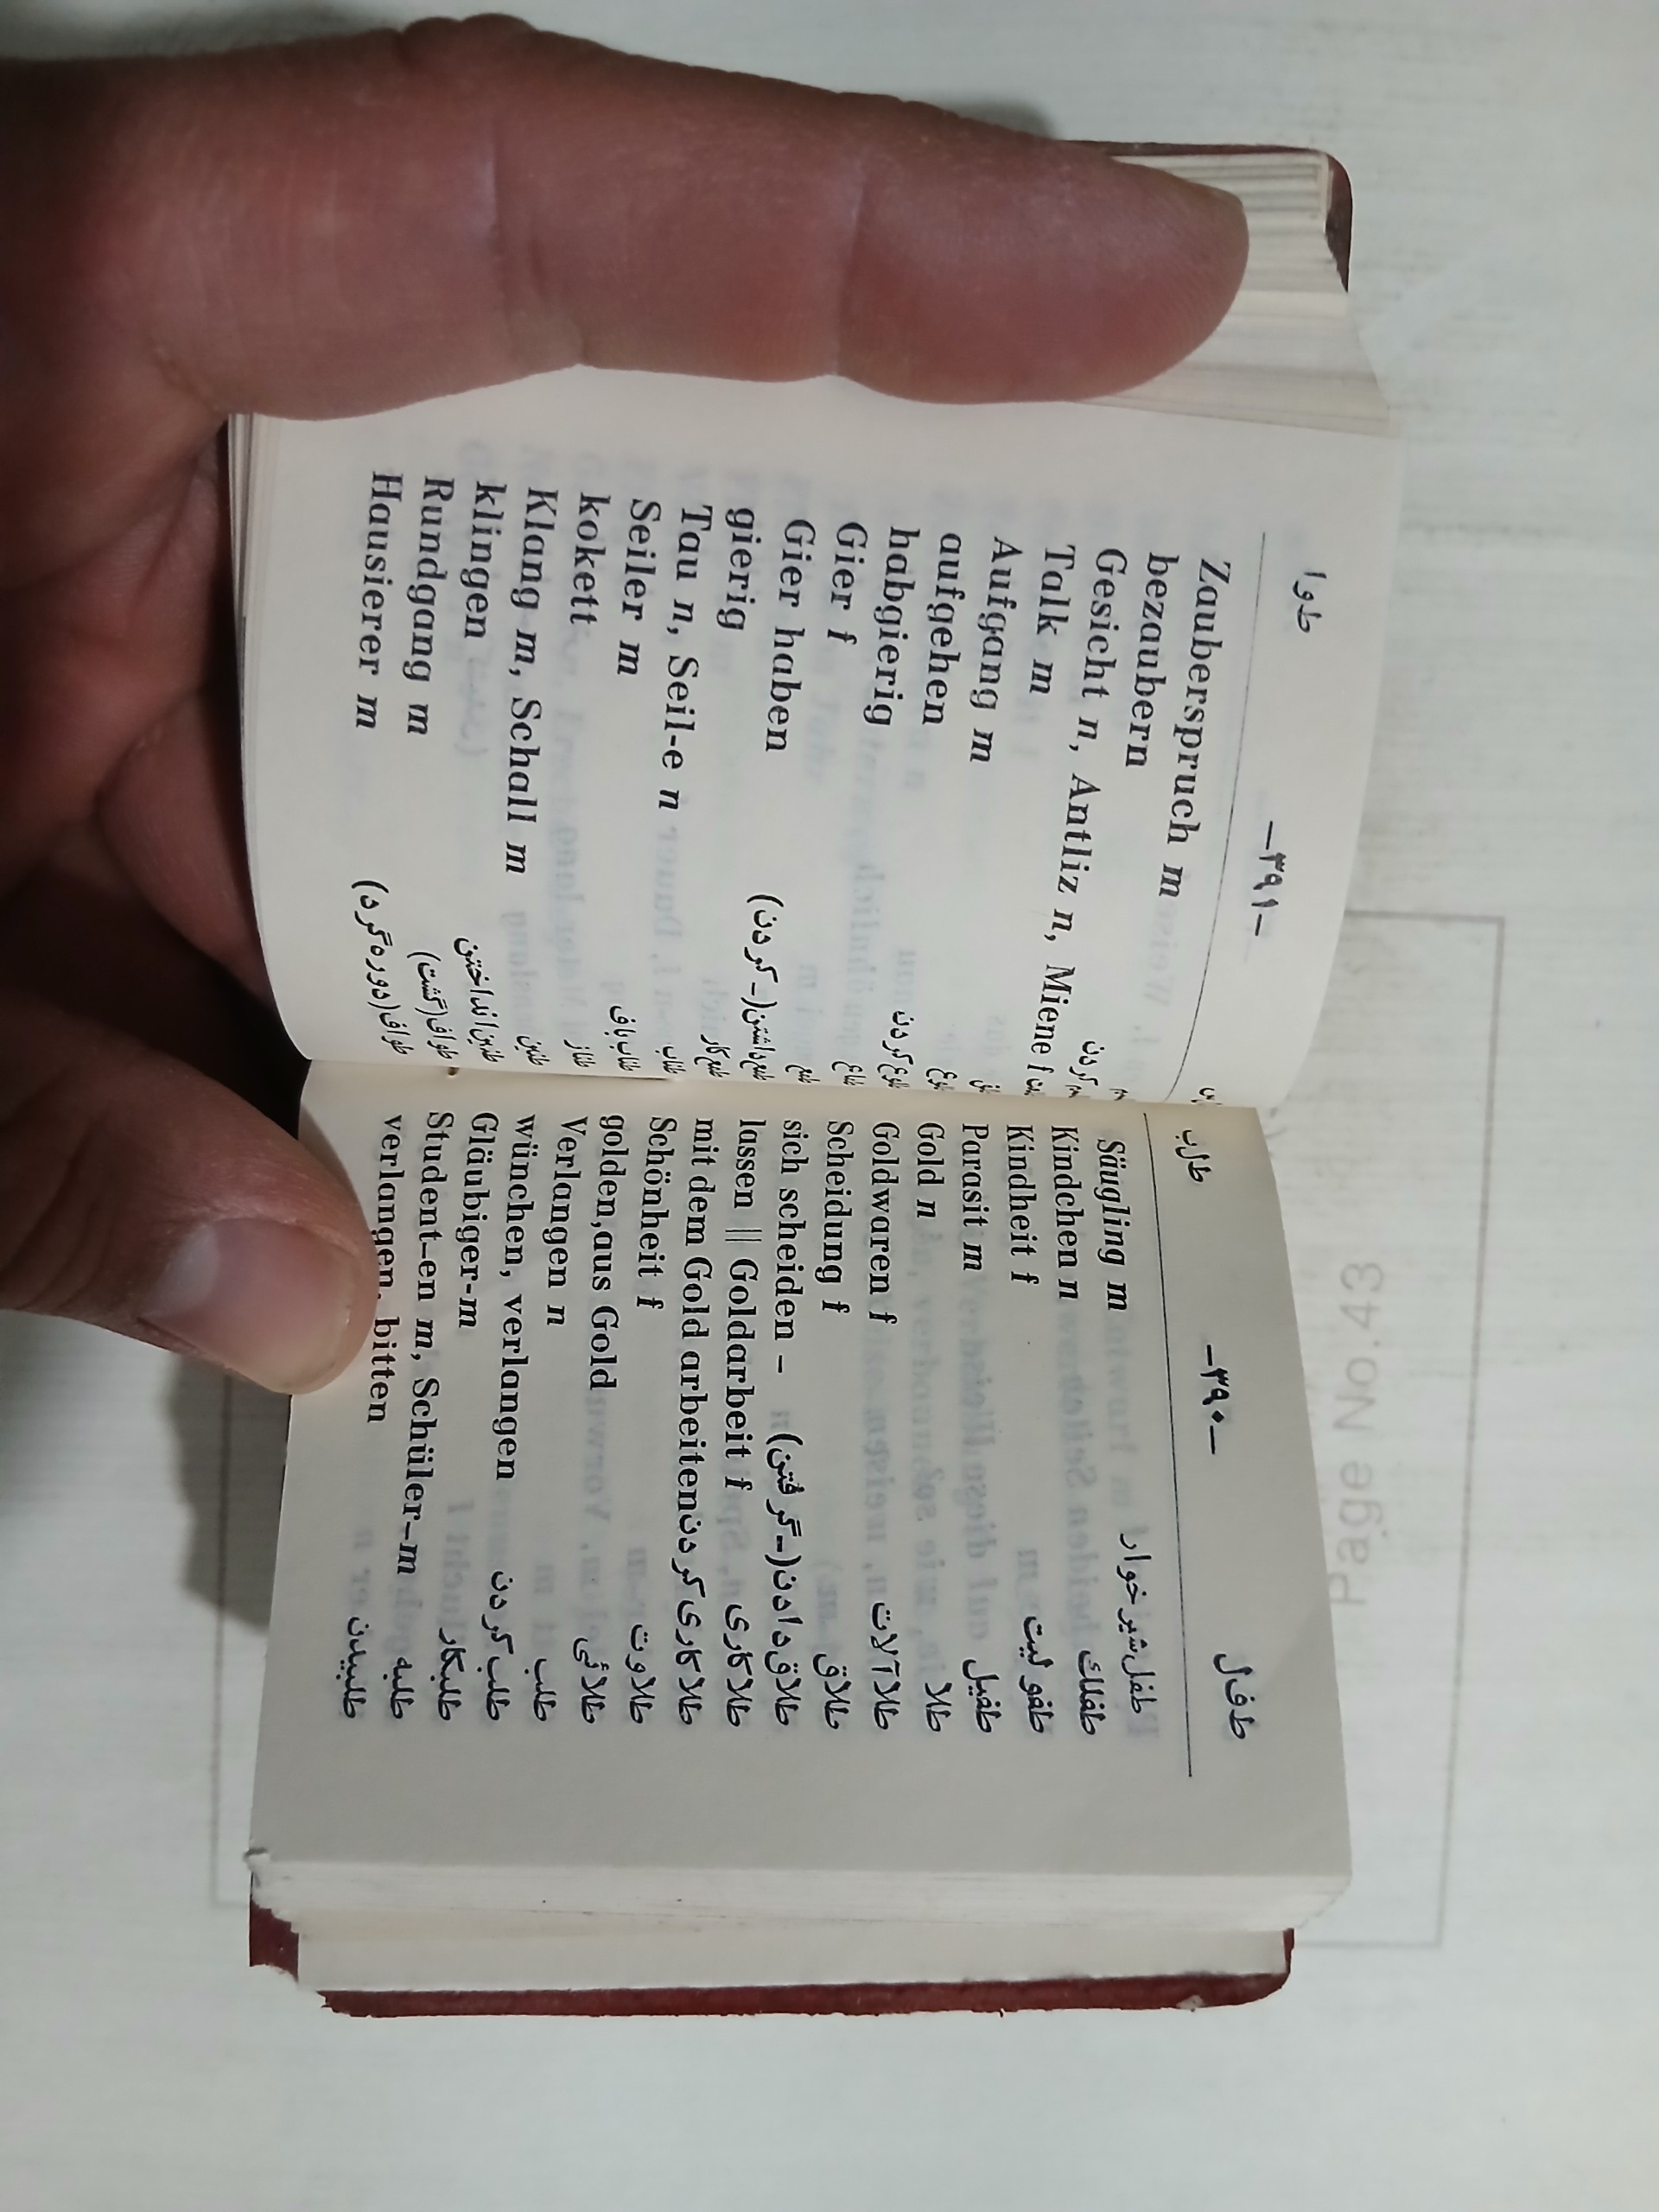 طوا —۳۹۱—
Zauberspruch m
bezaubern
Gesicht n, Antliz n, Miene f
کردن
Talk m
Aufgang m
aufgehen
طلوع کردن
habgierig
Gier f
طمع
Gier haben
طمع داشتن (ـ کردن)
gierig
طمع کار
Tau n, Seil-e n
طناب
Seiler m
طناب باف
kokett
طناز
Klang m, Schall m
طنین
klingen
طنین انداختن
Rundgang m
طواف (گشت)
Hausierer m
طواف (دوره گرد)
طلب —۳۹۰— طفل
Säugling m طفل شیرخوار
Kindchen n طفلك
Kindheit f طفولیت
Parasit m طفیل
Gold n طلا
Goldwaren f طلا آلات
Scheidung f طلاق
sich scheiden - طلاق دادن (ـ گرفتن)
lassen || Goldarbeit f طلا کاری
mit dem Gold arbeiten طلا کاری کردن
Schönheit f طلاوت
golden,aus Gold طلائی
Verlangen n طلب
wünchen, verlangen طلب کردن
Gläubiger-m طلبکار
Student–en m, Schüler–m طلبه
verlangen, bitten طلبیدن
Page No.43